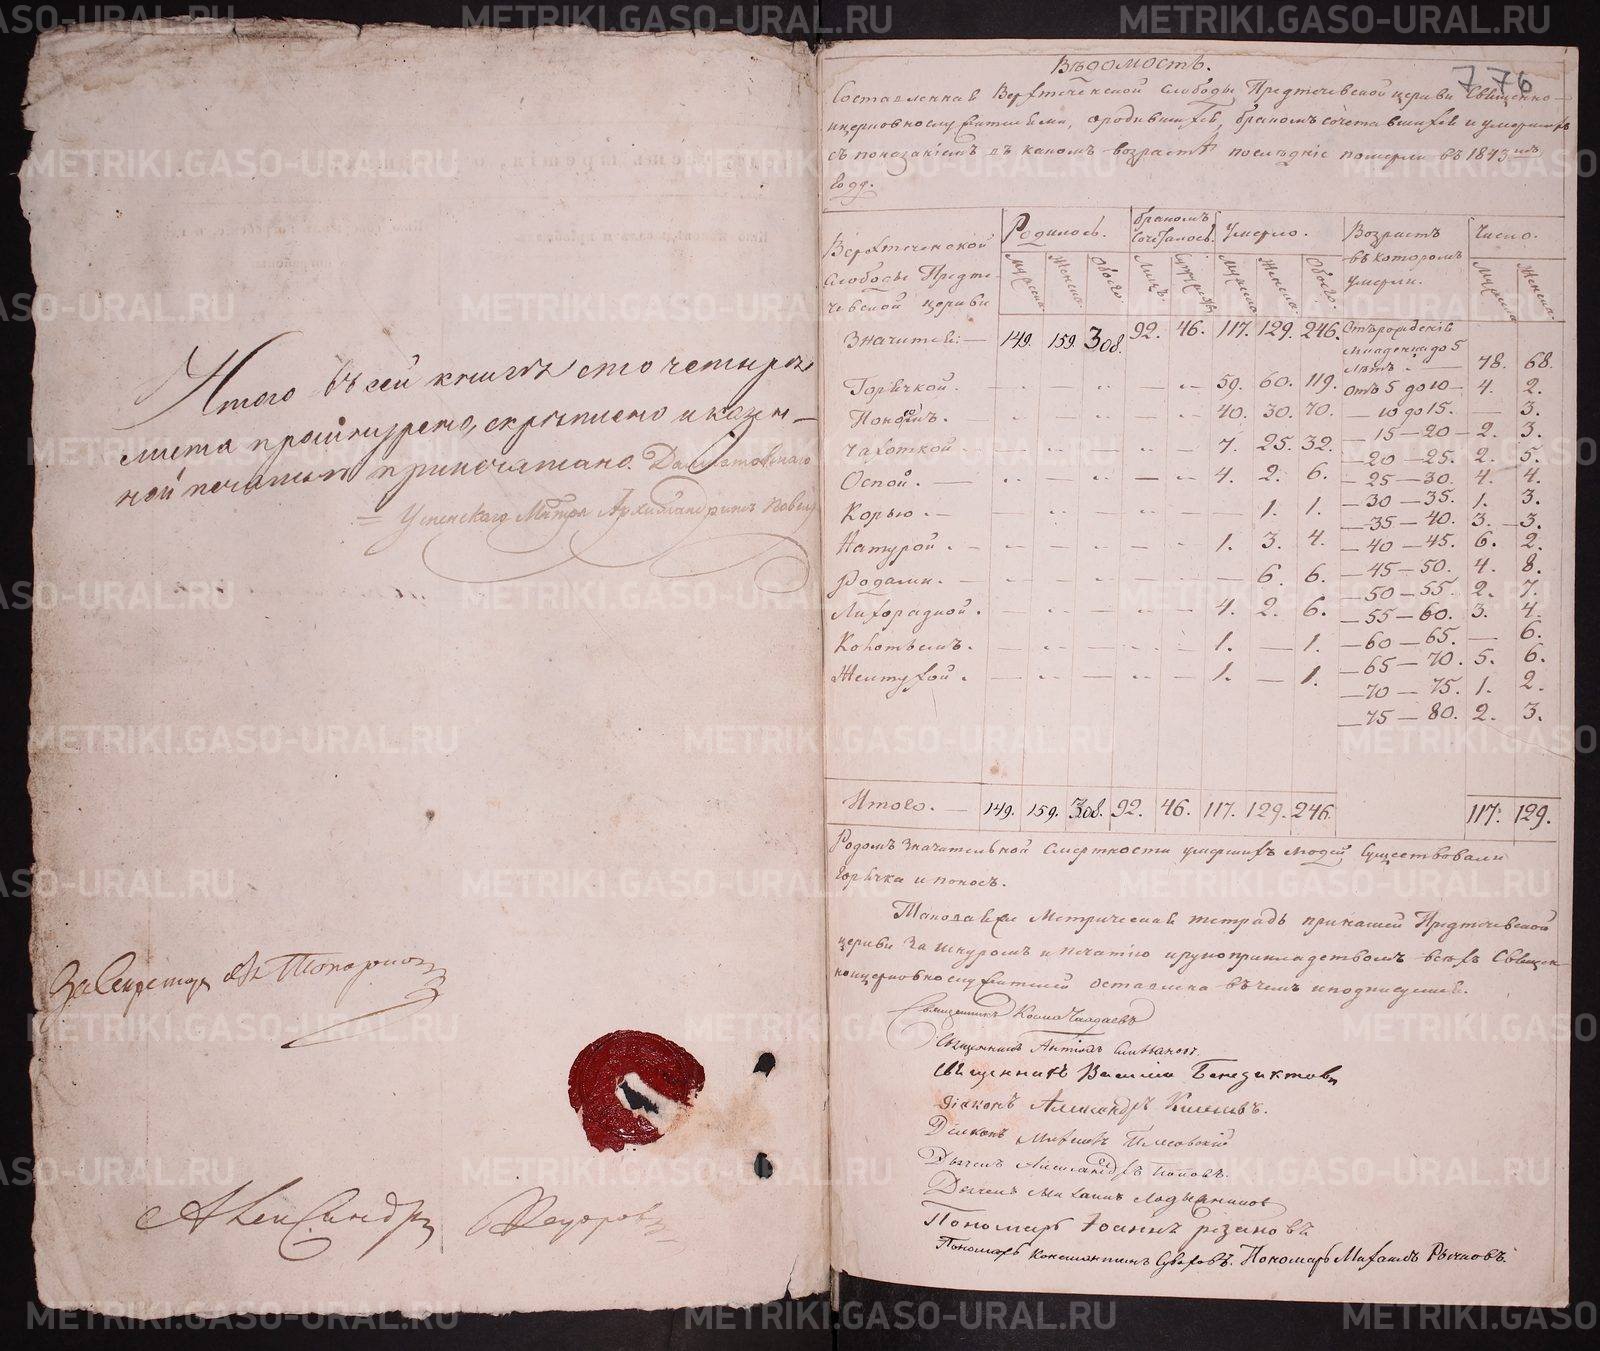 Итого въ сей книгѣ сто четыре
листа прошнурено, скрѣплено и казен-
ной печатью припечатано. Далматовскаго
= Успенскаго Мнтря Архимандритъ
За Секретаря
Александръ Федоровъ
776
Вѣдомость.
Составленная Верхтеченской слободы Предтечевской церкви Священно-
церковнослужителями, о родившихся, бракомъ сочетавшихся и умершихъ
съ показаніемъ въ какомъ возрастѣ послѣдніе померли въ 1843мъ
году.
Верхтеченской слободы Предте-чевской церкви
Родилось. Бракомъ сочеталось. Умерло. Возрастъ въ которомъ умерли. Число.
Мужска. Женска. Обоего. Лицъ. Мужска Женска. Обоего. Мужска Женска.
Значится: — 149. 159. 308. 92. 46. 117. 129. 246. Отъ рожденія младенца до 5 лѣтъ. — 48. 68.
Горячкой. — — — 59. 60. 119. Отъ 5 до 10 — 4. 2.
Поносомъ. — — 40. 30. 70. — 10 до 15. — 3.
Чахоткой — — 7. 25. 32. — 15 — 20 — 2. 3.
— 20 — 25. 2. 5.
Оспой. — — 4. 2. 6. — 25 — 30. 4. 4.
Корью. — — 1. 1. — 30 — 35. 1. 3.
— 35 — 40. 3. — 3.
Натурой. — — 1. 3. 4. — 40 — 45. 6. 2.
Родами. — — 6. 6. — 45 — 50. 4. 8.
— 50 — 55. 2. 7.
Лихорадкой. — — 4. 2. 6. — 55 — 60. 3. 4.
— 1. — 1. — 60 — 65. — 6.
— 65 — 70. 5. 6.
Желтухой. — — 1. — 1. — 70 — 75. 1. 2.
— 75 — 80. 2. 3.
Итого. — 149. 159. 308. 92. 46. 117. 129. 246. 117. 129.
Родомъ значительной смертности умершихъ людей существовали
горячка и поносъ.
Таковая же Метрическая тетрадь при нашей Предтечевской
церкви за шнуромъ и печатію и рукоприкладствомъ всѣхъ Священ-
ноцерковнослужителей оставлена въ чемъ и подписуемся.
Священникъ Косма
Священникъ Антоній
Священникъ Василій Бенедиктовъ
Діаконъ Александръ
Діаконъ
Дьячекъ Александръ Поповъ.
Дьячекъ Михаилъ
Пономарь Іоаннъ Рѣзановъ
Пономарь Константинъ Суворовъ. Пономарь Михаилъ Рычковъ.
METRIKI.GASO-URAL.RU